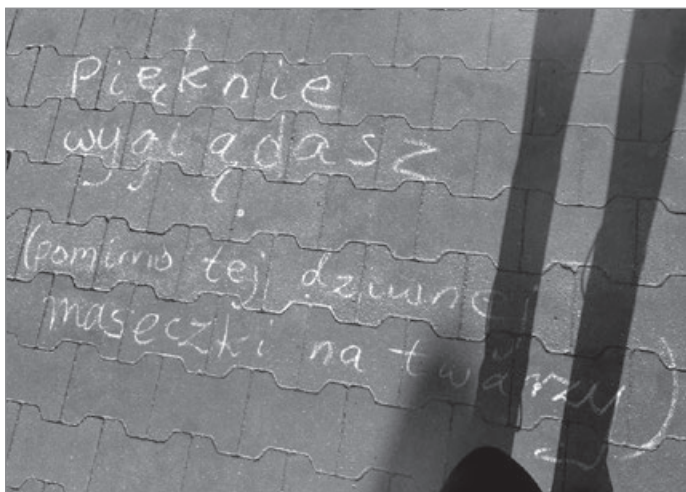 Pięknie
wyglądasz
(pomimo tej dziwnej
maseczki na twarzy)